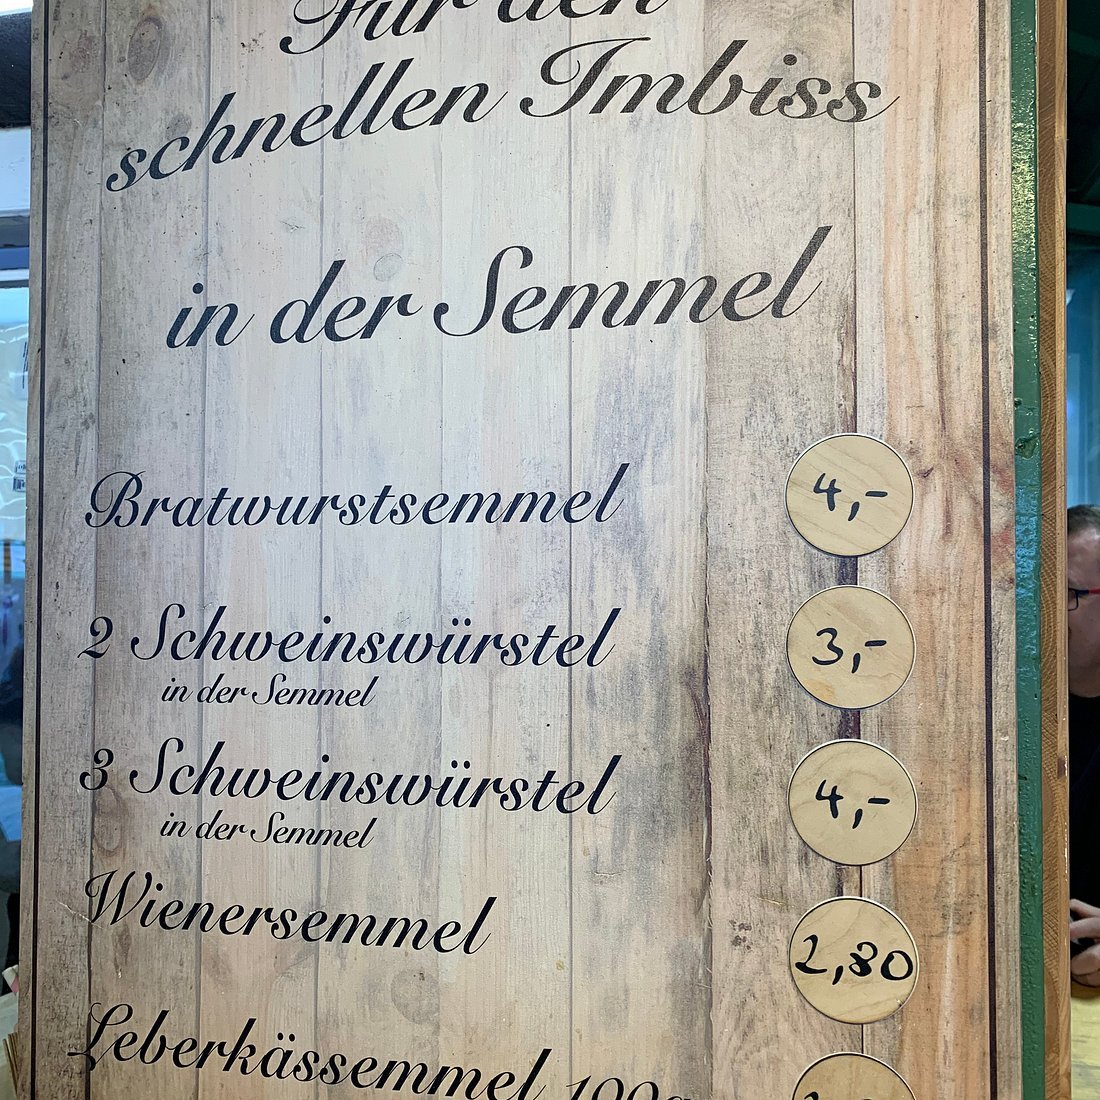 Für den
schnellen Imbiss
in der Semmel
Bratwurstsemmel 4,-
2 Schweinswürstel 3,-
in der Semmel
3 Schweinswürstel 4,-
in der Semmel
Wienersemmel 2,80
Leberkässemmel 100g